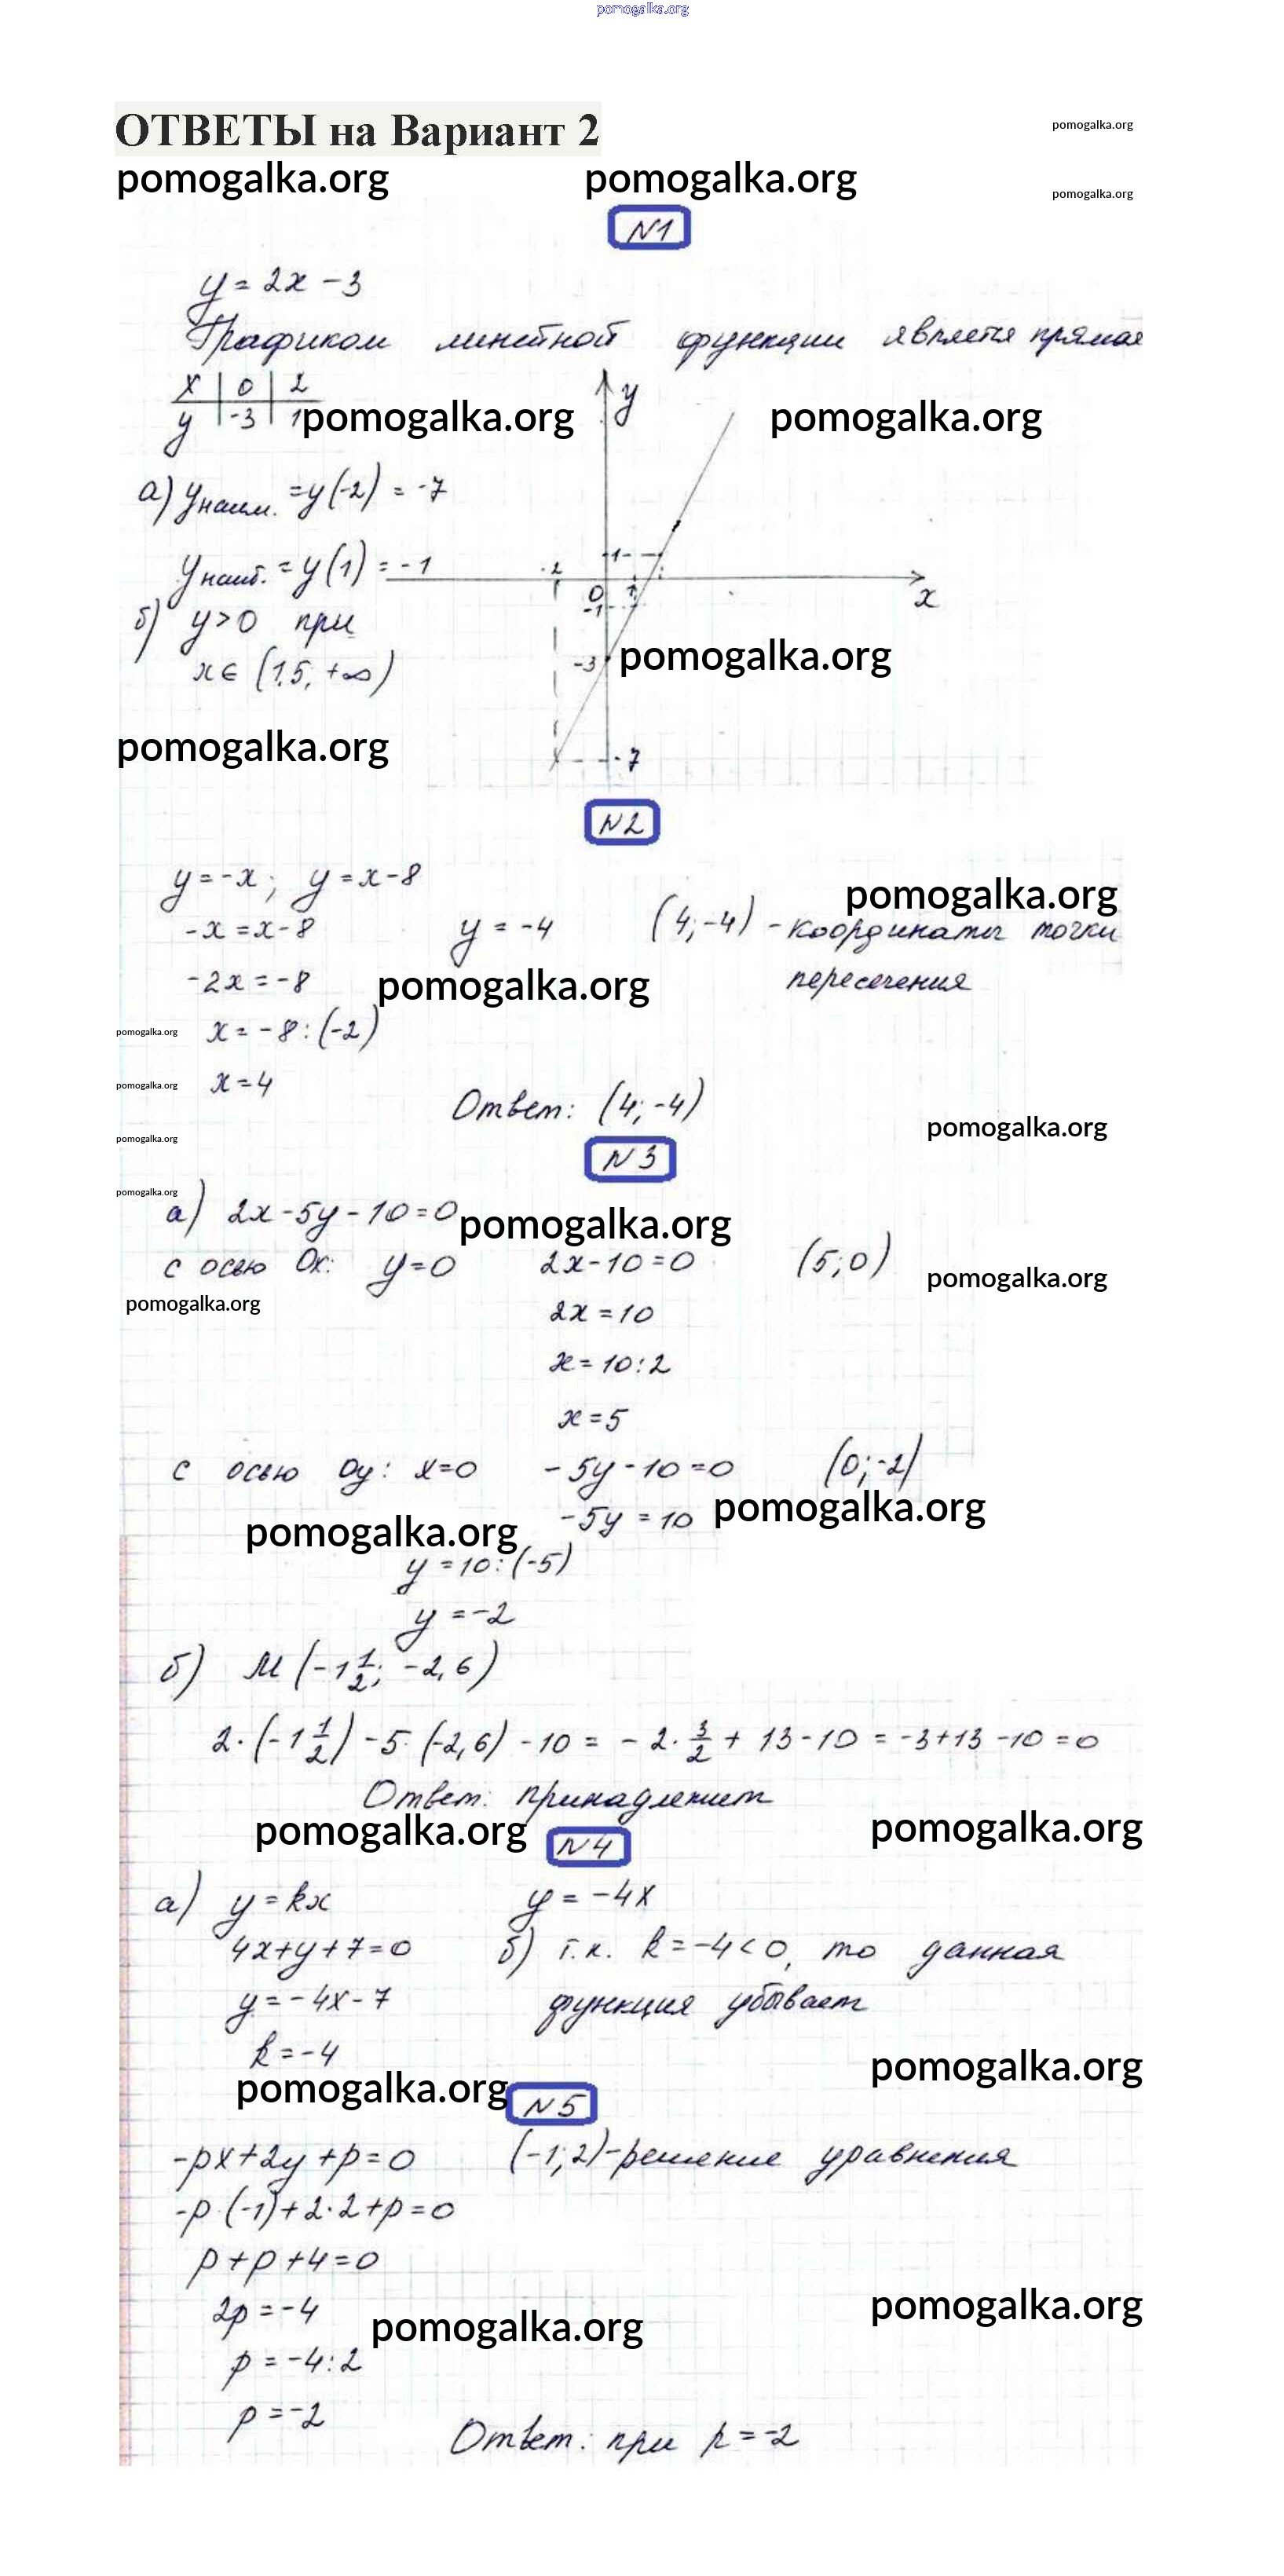 pomogalka.org
ОТВЕТЫ на Вариант 2
pomogalka.org
pomogalka.org pomogalka.org
pomogalka.org
N1
y = 2x - 3
Графиком линейной функции является прямая
x | 0 | 2
y | -3 | 1
pomogalka.org pomogalka.org
y
а) y наим. = y(-2) = -7
y наиб. = y(1) = -1
-2 1 0 1 -1 x
б) y>0 при
x ∈ (1,5, +∞)
-3 pomogalka.org
pomogalka.org
-7
N2
y = -x; y = x-8
pomogalka.org
-x = x-8 y = -4 (4; -4) - координаты точки
-2x = -8 пересечения
pomogalka.org
pomogalka.org x = -8 : (-2)
pomogalka.org x = 4
Ответ: (4; -4)
pomogalka.org pomogalka.org
N3
pomogalka.org
а) 2x - 5y - 10 = 0
pomogalka.org
с осью Ox: y=0 2x-10=0 (5; 0)
pomogalka.org
pomogalka.org
2x = 10
x = 10:2
x = 5
с осью Oy: x=0 -5y-10=0 (0; -2)
-5y = 10 pomogalka.org
pomogalka.org
y = 10:(-5)
y = -2
б) M (-1 1/2; -2,6)
2·(-1 1/2) -5·(-2,6) - 10 = -2· 3/2 + 13-10 = -3+13-10=0
Ответ: принадлежит
pomogalka.org pomogalka.org
N4
а) y = kx y = -4x
4x+y+7=0 б) т.к. k=-4<0, то данная
y = -4x-7 функция убывает
k = -4
pomogalka.org pomogalka.org
N5
-px+2y+p=0 (-1; 2)-решение уравнения
-p·(-1)+2·2+p=0
p+p+4=0
2p = -4
pomogalka.org pomogalka.org
p = -4:2
p = -2
Ответ: при p = -2